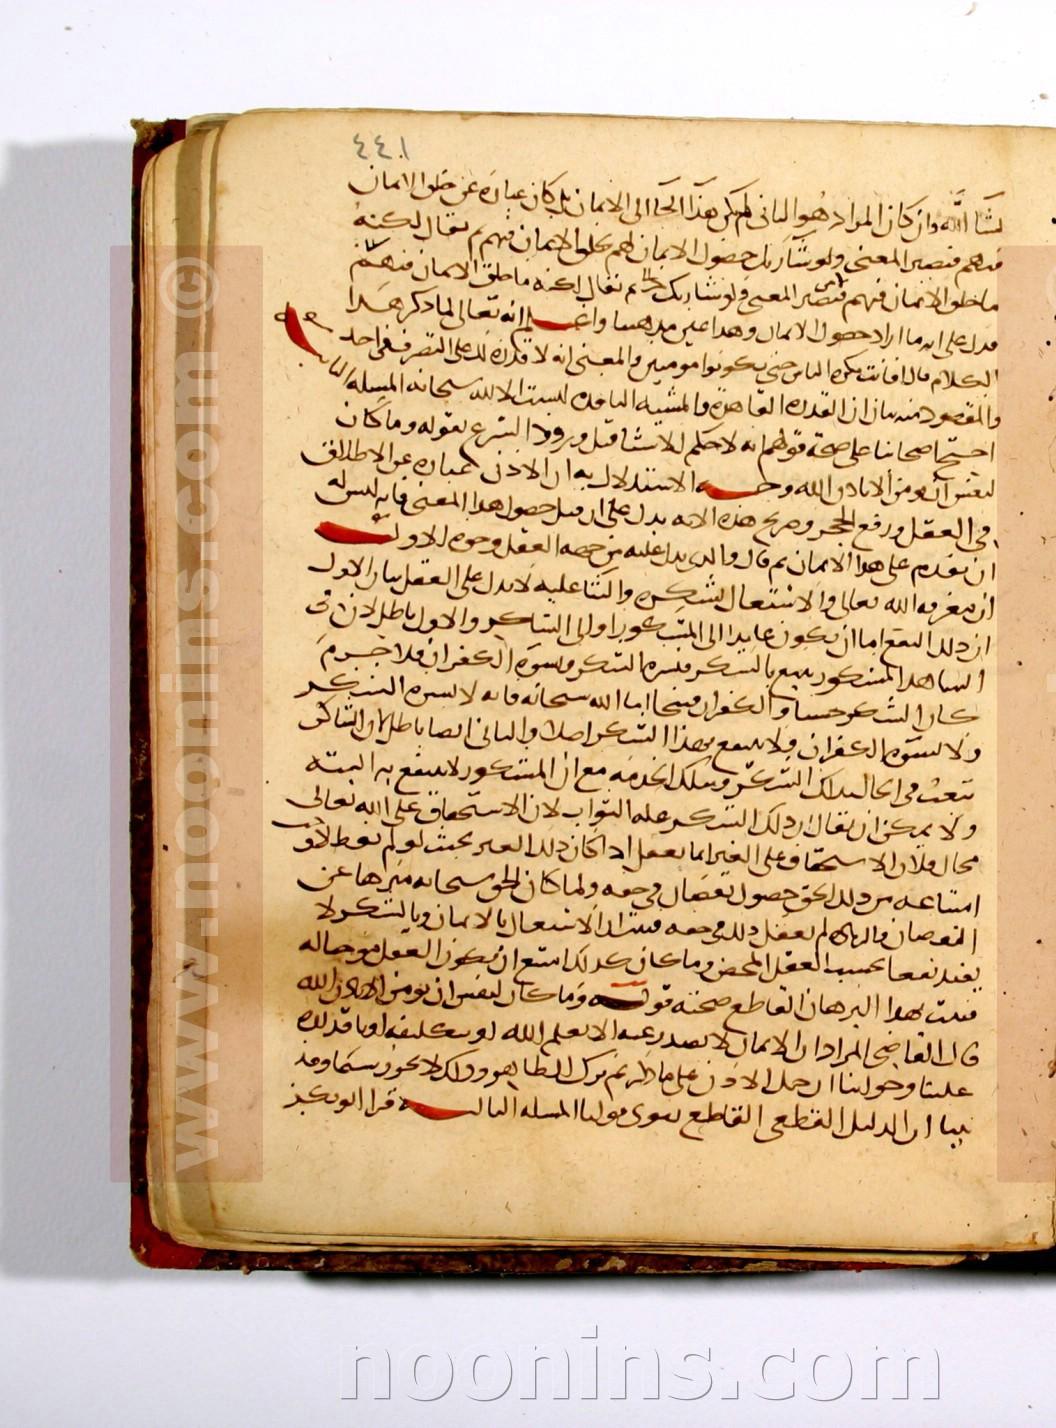 ٤٤١
يشآ الله وان كان المراد هو الثاني لم يكن هذا الجآ الى الايمان بل كان عبارة عن خلق الايمان
فيهم فيصير المعنى ولو شآ ربك حصول الايمان لهم لخلق الايمان فيهم ثم يقال لكنه
ما خلق الايمان فيهم فيصير المعنى ولو شا ربك ثم يقال لكنه ما خلق الايمان فيهم
فدل على انه ما اراد حصول الايمان وهذا عين مذهبنا واعلم انه تعالى لما ذكر هذا
الكلام قال افانت تكره الناس حتى يكونوا مومنين والمعنى انه لا قدرة لك على التصرف في احد
والمقصود منه بيان ان القدرة القاهرة والمشية النافذة ليست الا لله سبحانه المسلة الثانية
احتج اصحابنا على صحة قولهم انه لا حكم للاشيا قبل ورود الشرع بقوله وما كان
لنفس ان تومن الا باذن الله وجه الاستدلال به ان الاذن عبارة عن الاطلاق
في الفعل ورفع الحجر وصريح هذه الاية يدل على ان قبل حصول هذا المعنى فانه ليس له
ان يقدم على هذا الايمان ثم قال والذي يدل عليه من جهة العقل وجوه الاول
ان معرفة الله تعالى والاشتغال بشكره والثنا عليه لا يدل على العقل بيان الاول
ان ذلك النفع اما ان يكون عايدا الى المشكور او الى الشاكر والاول باطل لان في
الشاهد المشكور ينتفع بالشكر فيسره الشكر ويسوه الكفران فلا جرم
كان الشكر حسنا والكفران قبيحا اما الله سبحانه فانه لا يسره الشكر
ولا يسوه الكفران فلا ينتفع بهذا الشكر اصلا والثاني ايضا باطل لان الشاكر
يتعب في الحال بذلك الشكر وبتلك الخدمة مع ان المشكور لا ينتفع به البتة
ولا يمكن ان يقال ان ذلك الشكر علة الثواب لان الاستحقاق على الله تعالى
محال فلان الاستحقاق على الغير انما يعقل اذا كان ذلك الغير بحيث لو لم يعط لاوجب
امتناعه من ذلك الحق حصول نقصان في حقه ولما كان الحق سبحانه منزها عن
النقصان والزيادة لم يعقل ذلك في حقه فثبت ان الاشتغال بالايمان وبالشكر لا
يفيد نفعا بحسب العقل المحض وما كان كذلك امتنع ان يكون العقل موجبا له
فثبت بهذا البرهان القاطع صحة قوله وما كان لنفس ان تومن الا باذن الله
قال القاضي المراد ان الايمان لا يصدر عنه الا بعلم الله او بتكليفه او باقداره
عليه وجوابنا ان حمل الاذن على ما ذكرتم ترك للظاهر وذلك لا يجوز سيما وقد
بينا ان الدليل القطعي القاطع يقوي قولنا المسلة الثالثة قرا ابو بكر